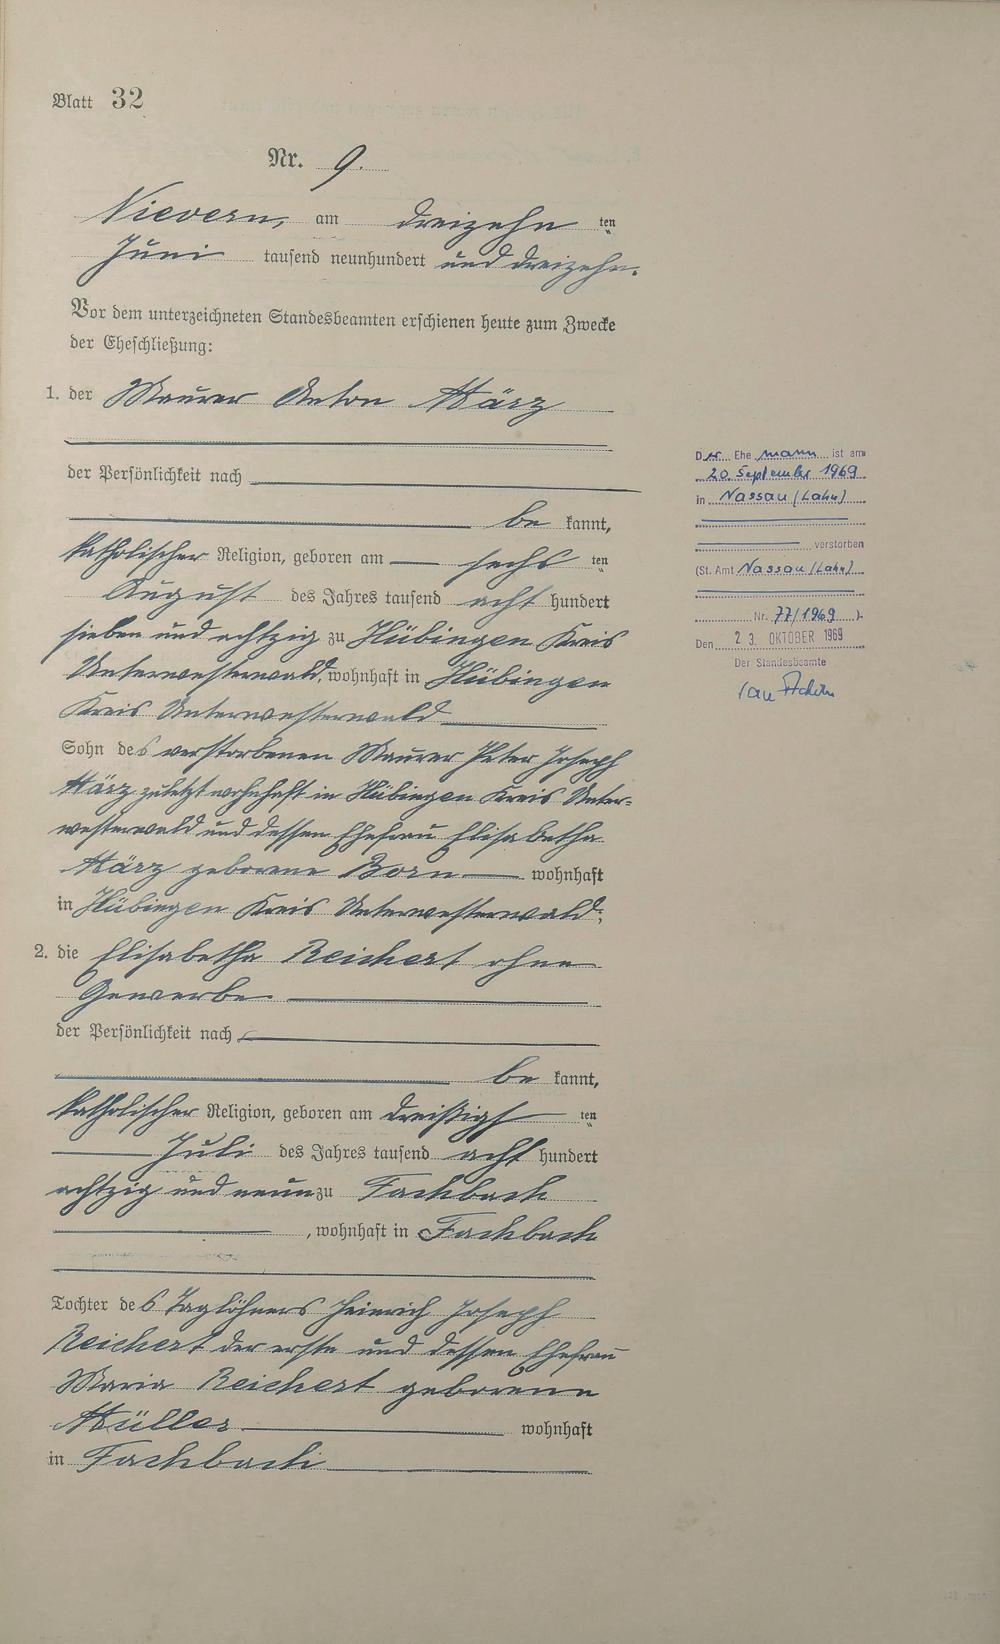 Blatt 32
Nr. 9.
Nievern, am dreizehn ten
Juni tausend neunhundert und dreizehn.
Vor dem unterzeichneten Standesbeamten erschienen heute zum Zwecke
der Eheschließung:
1. der Maurer Anton März
der Persönlichkeit nach
be kannt,
katholischer Religion, geboren am sechs ten
August des Jahres tausend acht hundert
sieben und achtzig zu Hübingen Kreis
Unterwesterwald, wohnhaft in Hübingen
Kreis Unterwesterwald
Sohn des verstorbenen Maurer Peter Joseph
März zuletzt wohnhaft in Hübingen Kreis Unter-
westerwald und dessen Ehefrau Elisabetha
März geborene Born wohnhaft
in Hübingen Kreis Unterwesterwald;
2. die Elisabetha Reichert ohne
Gewerbe
der Persönlichkeit nach
be kannt,
katholischer Religion, geboren am dreißigs ten
Juli des Jahres tausend acht hundert
achtzig und neun zu Fachbach
, wohnhaft in Fachbach
Tochter des Taglöhners Heinrich Joseph
Reichert der erste und dessen Ehefrau
Maria Reichert geborene
Müller wohnhaft
in Fachbach
Der Ehe mann ist am
20. September 1969
in Nassau (Lahn)
verstorben
(St. Amt Nassau (Lahn)
Nr. 77/1969 ).
Den 23. OKTOBER 1969
Der Standesbeamte